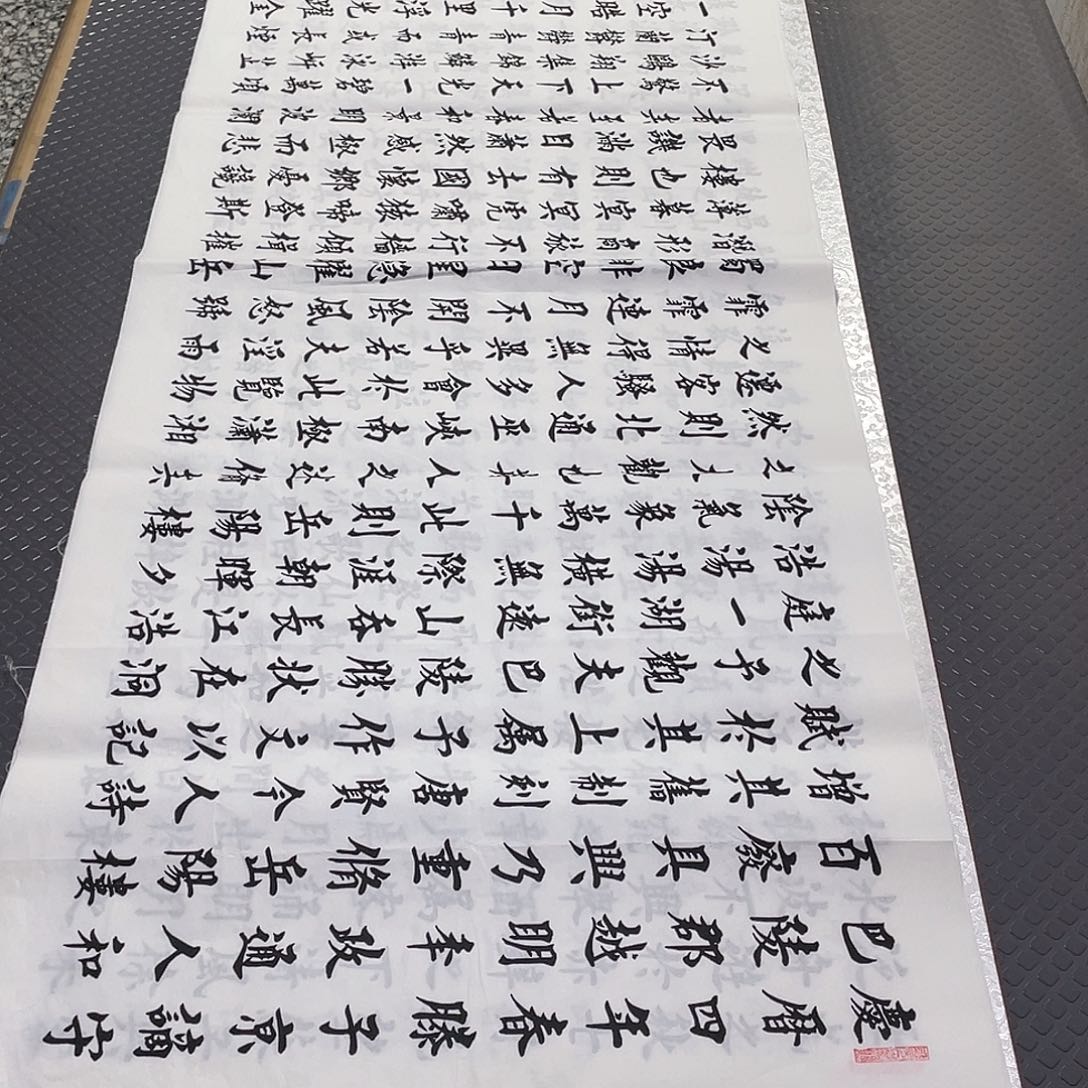 慶曆四年春滕子京謫守
巴陵郡越明年政通人和
百廢具興乃重脩岳陽樓
增其舊制刻唐賢今人詩
賦於其上屬予作文以記
之予觀夫巴陵勝狀在洞
庭一湖銜遠山吞長江浩
浩湯湯橫無際涯朝暉夕
陰氣象萬千此則岳陽樓
之大觀也前人之述備矣
然則北通巫峽南極瀟湘
遷客騷人多會於此覽物
之情得無異乎若夫淫雨
霏霏連月不開陰風怒號
濁浪排空日星隱耀山岳
潛形商旅不行檣傾楫摧
薄暮冥冥虎嘯猿啼登斯
樓也則有去國懷鄉憂讒
畏譏滿目蕭然感極而悲
者矣至若春和景明波瀾
不驚上下天光一碧萬頃
沙鷗翔集錦鱗游泳岸芷
汀蘭郁郁青青而或長煙
一空皓月千里浮光躍金